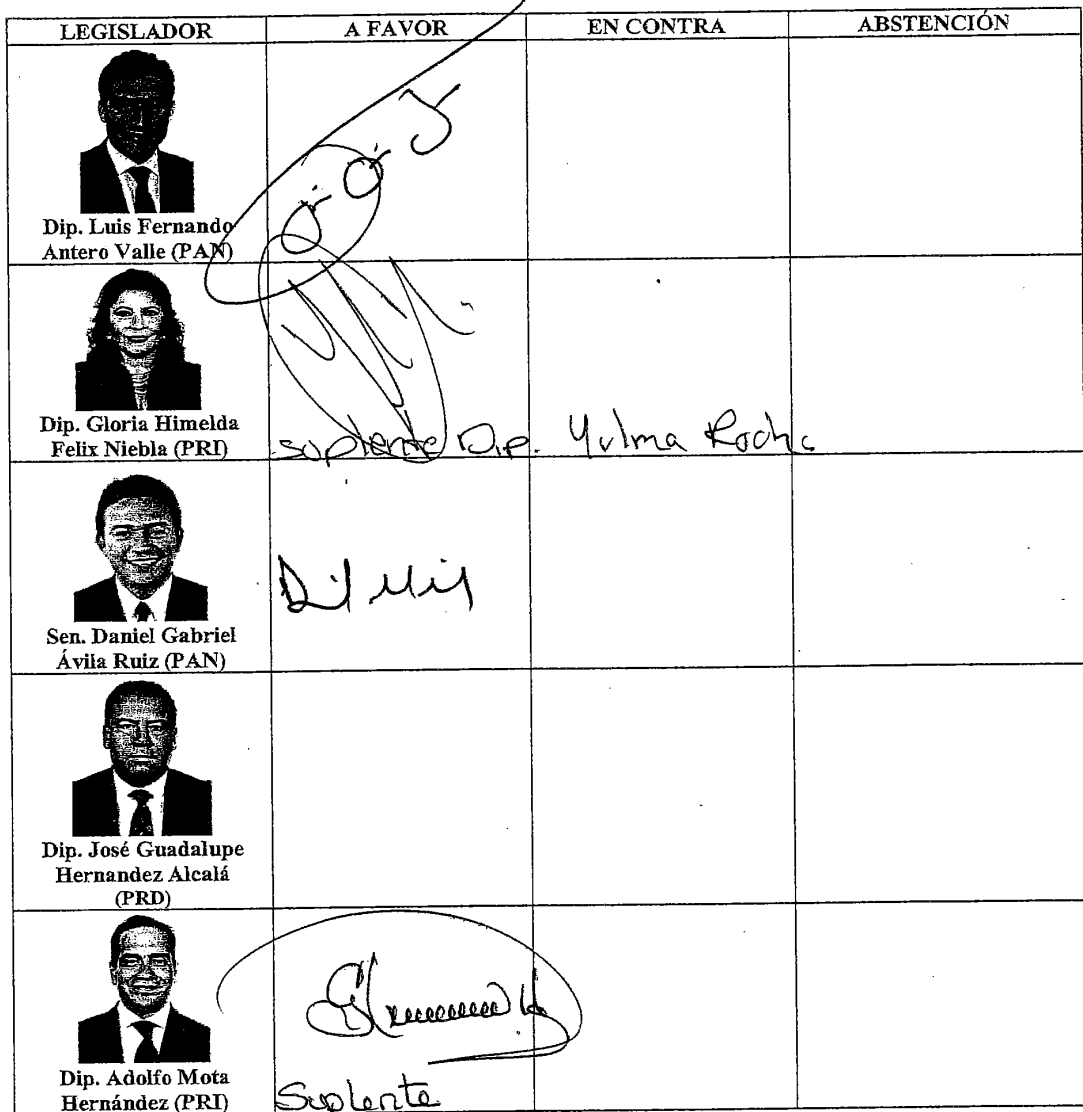 LEGISLADOR A FAVOR EN CONTRA ABSTENCIÓN
Dip. Luis Fernando
Antero Valle (PAN)
Dip. Gloria Himelda
Felix Niebla (PRI)
suplente Dip. Yulma Rocha
Sen. Daniel Gabriel
Ávila Ruiz (PAN)
Dip. José Guadalupe
Hernandez Alcalá
(PRD)
Dip. Adolfo Mota
Hernández (PRI)
Suplente